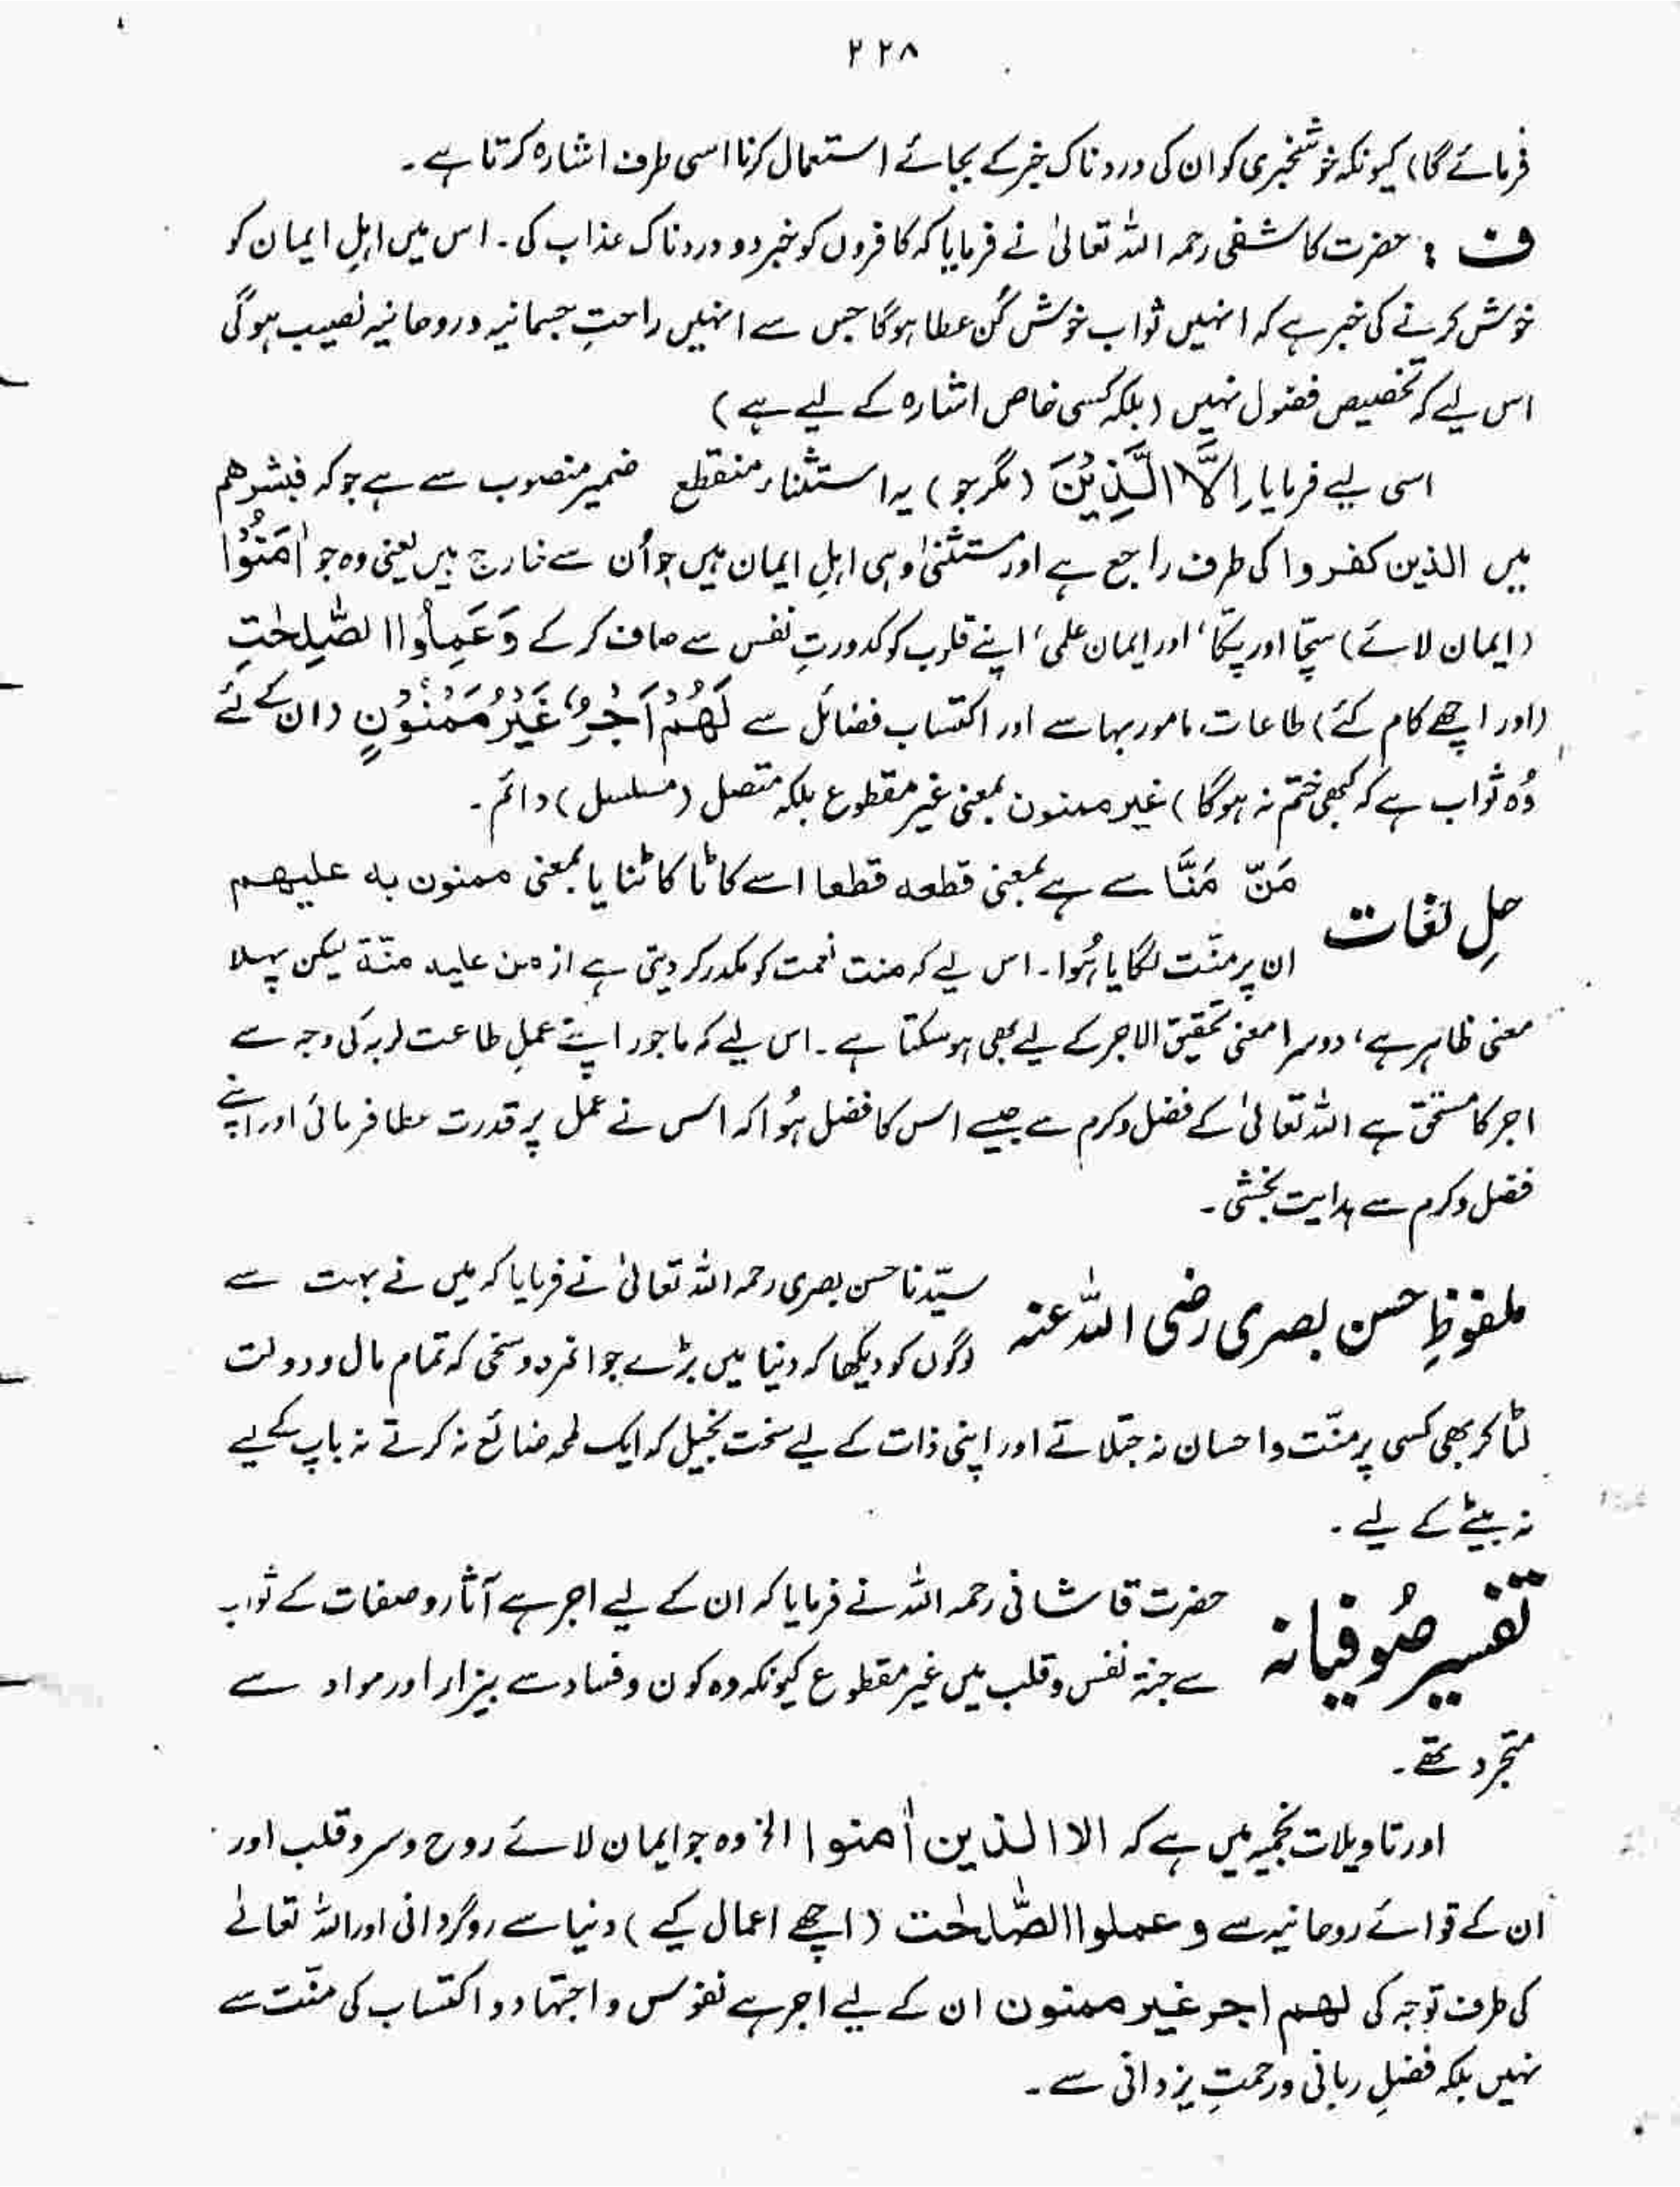 ۲۲۸
فرمائے گا) کیونکہ خوشخبری کو ان کی دردناک خبر کے بجائے استعمال کرنا اسی طرف اشارہ کرتا ہے۔
ف : حضرت کاشفی رحمہ اللہ تعالیٰ نے فرمایا کہ کافروں کو خبر دو دردناک عذاب کی۔ اس میں اہلِ ایمان کو
خوش کرنے کی خبر ہے کہ انہیں ثواب خوش کُن عطا ہوگا جس سے انہیں راحتِ جسمانیہ و روحانیہ نصیب ہوگی
اس لیے کہ تخصیص فضول نہیں (بلکہ کسی خاص اشارہ کے لیے ہے)
اسی لیے فرمایا اِلَّا الَّذِیْنَ (مگر جو) یہ استثناء منقطع ضمیر منصوب سے ہے جو کہ فبشرھم
میں الذین کفروا کی طرف راجع ہے اور مستثنیٰ وہی اہلِ ایمان ہیں جو اُن سے خارج ہیں یعنی وہ جو اٰمَنُوْا
(ایمان لائے) سچّا اور پکّا، اور ایمان علمی، اپنے قلوب کو کدورتِ نفس سے صاف کر کے وَعَمِلُوا الصّٰلِحٰتِ
(اور اچھے کام کئے) طاعات مامور بہا سے اور اکتساب فضائل سے لَھُمْ اَجْرٌ غَیْرُ مَمْنُوْنٍ (ان کے لئے
وُہ ثواب ہے کہ کبھی ختم نہ ہوگا) غیر ممنون بمعنی غیر مقطوع بلکہ متصل (مسلسل) دائم۔
حلِ لغات مَنّ مَنًّا سے ہے بمعنی قطعه قطعا اسے کاٹا کاٹنا یا بمعنی ممنون به علیھم
ان پر منّت لگایا ہُوا۔ اس لیے کہ منت نعمت کو مکدر کر دیتی ہے از من علیه منّة لیکن پہلا
معنی ظاہر ہے، دوسرا معنی تحقیق الاجر کے لیے بھی ہو سکتا ہے۔ اس لیے کہ ماجور اپنے عملِ طاعت لربہ کی وجہ سے
اجر کا مستحق ہے اللہ تعالیٰ کے فضل و کرم سے جیسے اس کا فضل ہُوا کہ اس نے عمل پر قدرت عطا فرمائی اور اپنے
فضل و کرم سے ہدایت بخشی۔
ملفوظِ حسن بصری رضی اللہ عنہ سیّدنا حسن بصری رحمہ اللہ تعالیٰ نے فرمایا کہ میں نے بہت سے
لوگوں کو دیکھا کہ دنیا میں بڑے جوانمرد و سخی کہ تمام مال و دولت
لٹا کر بھی کسی پر منّت و احسان نہ جتلاتے اور اپنی ذات کے لیے سخت بخیل کہ ایک لمحہ ضائع نہ کرتے نہ باپ کے لیے
نہ بیٹے کے لیے۔
تفسیر صُوفیانہ حضرت قاشانی رحمہ اللہ نے فرمایا کہ ان کے لیے اجر ہے آثار و صفات کے ثواب
سے جنۃ نفس و قلب میں غیر مقطوع کیونکہ وہ کون و فساد سے بیزار اور مواد سے
متجرد تھے۔
اور تاویلات نجمیہ میں ہے کہ الا الذین اٰمنوا الخ وہ جو ایمان لائے روح و سر و قلب اور
ان کے قوائے روحانیہ سے و عملوا الصّٰلحٰت (اچھے اعمال کیے) دنیا سے روگردانی اور اللہ تعالےٰ
کی طرف توجہ کی لھم اجر غیر ممنون ان کے لیے اجر ہے نفوس و اجتہاد و اکتساب کی منّت سے
نہیں بلکہ فضلِ ربانی و رحمتِ یزدانی سے۔